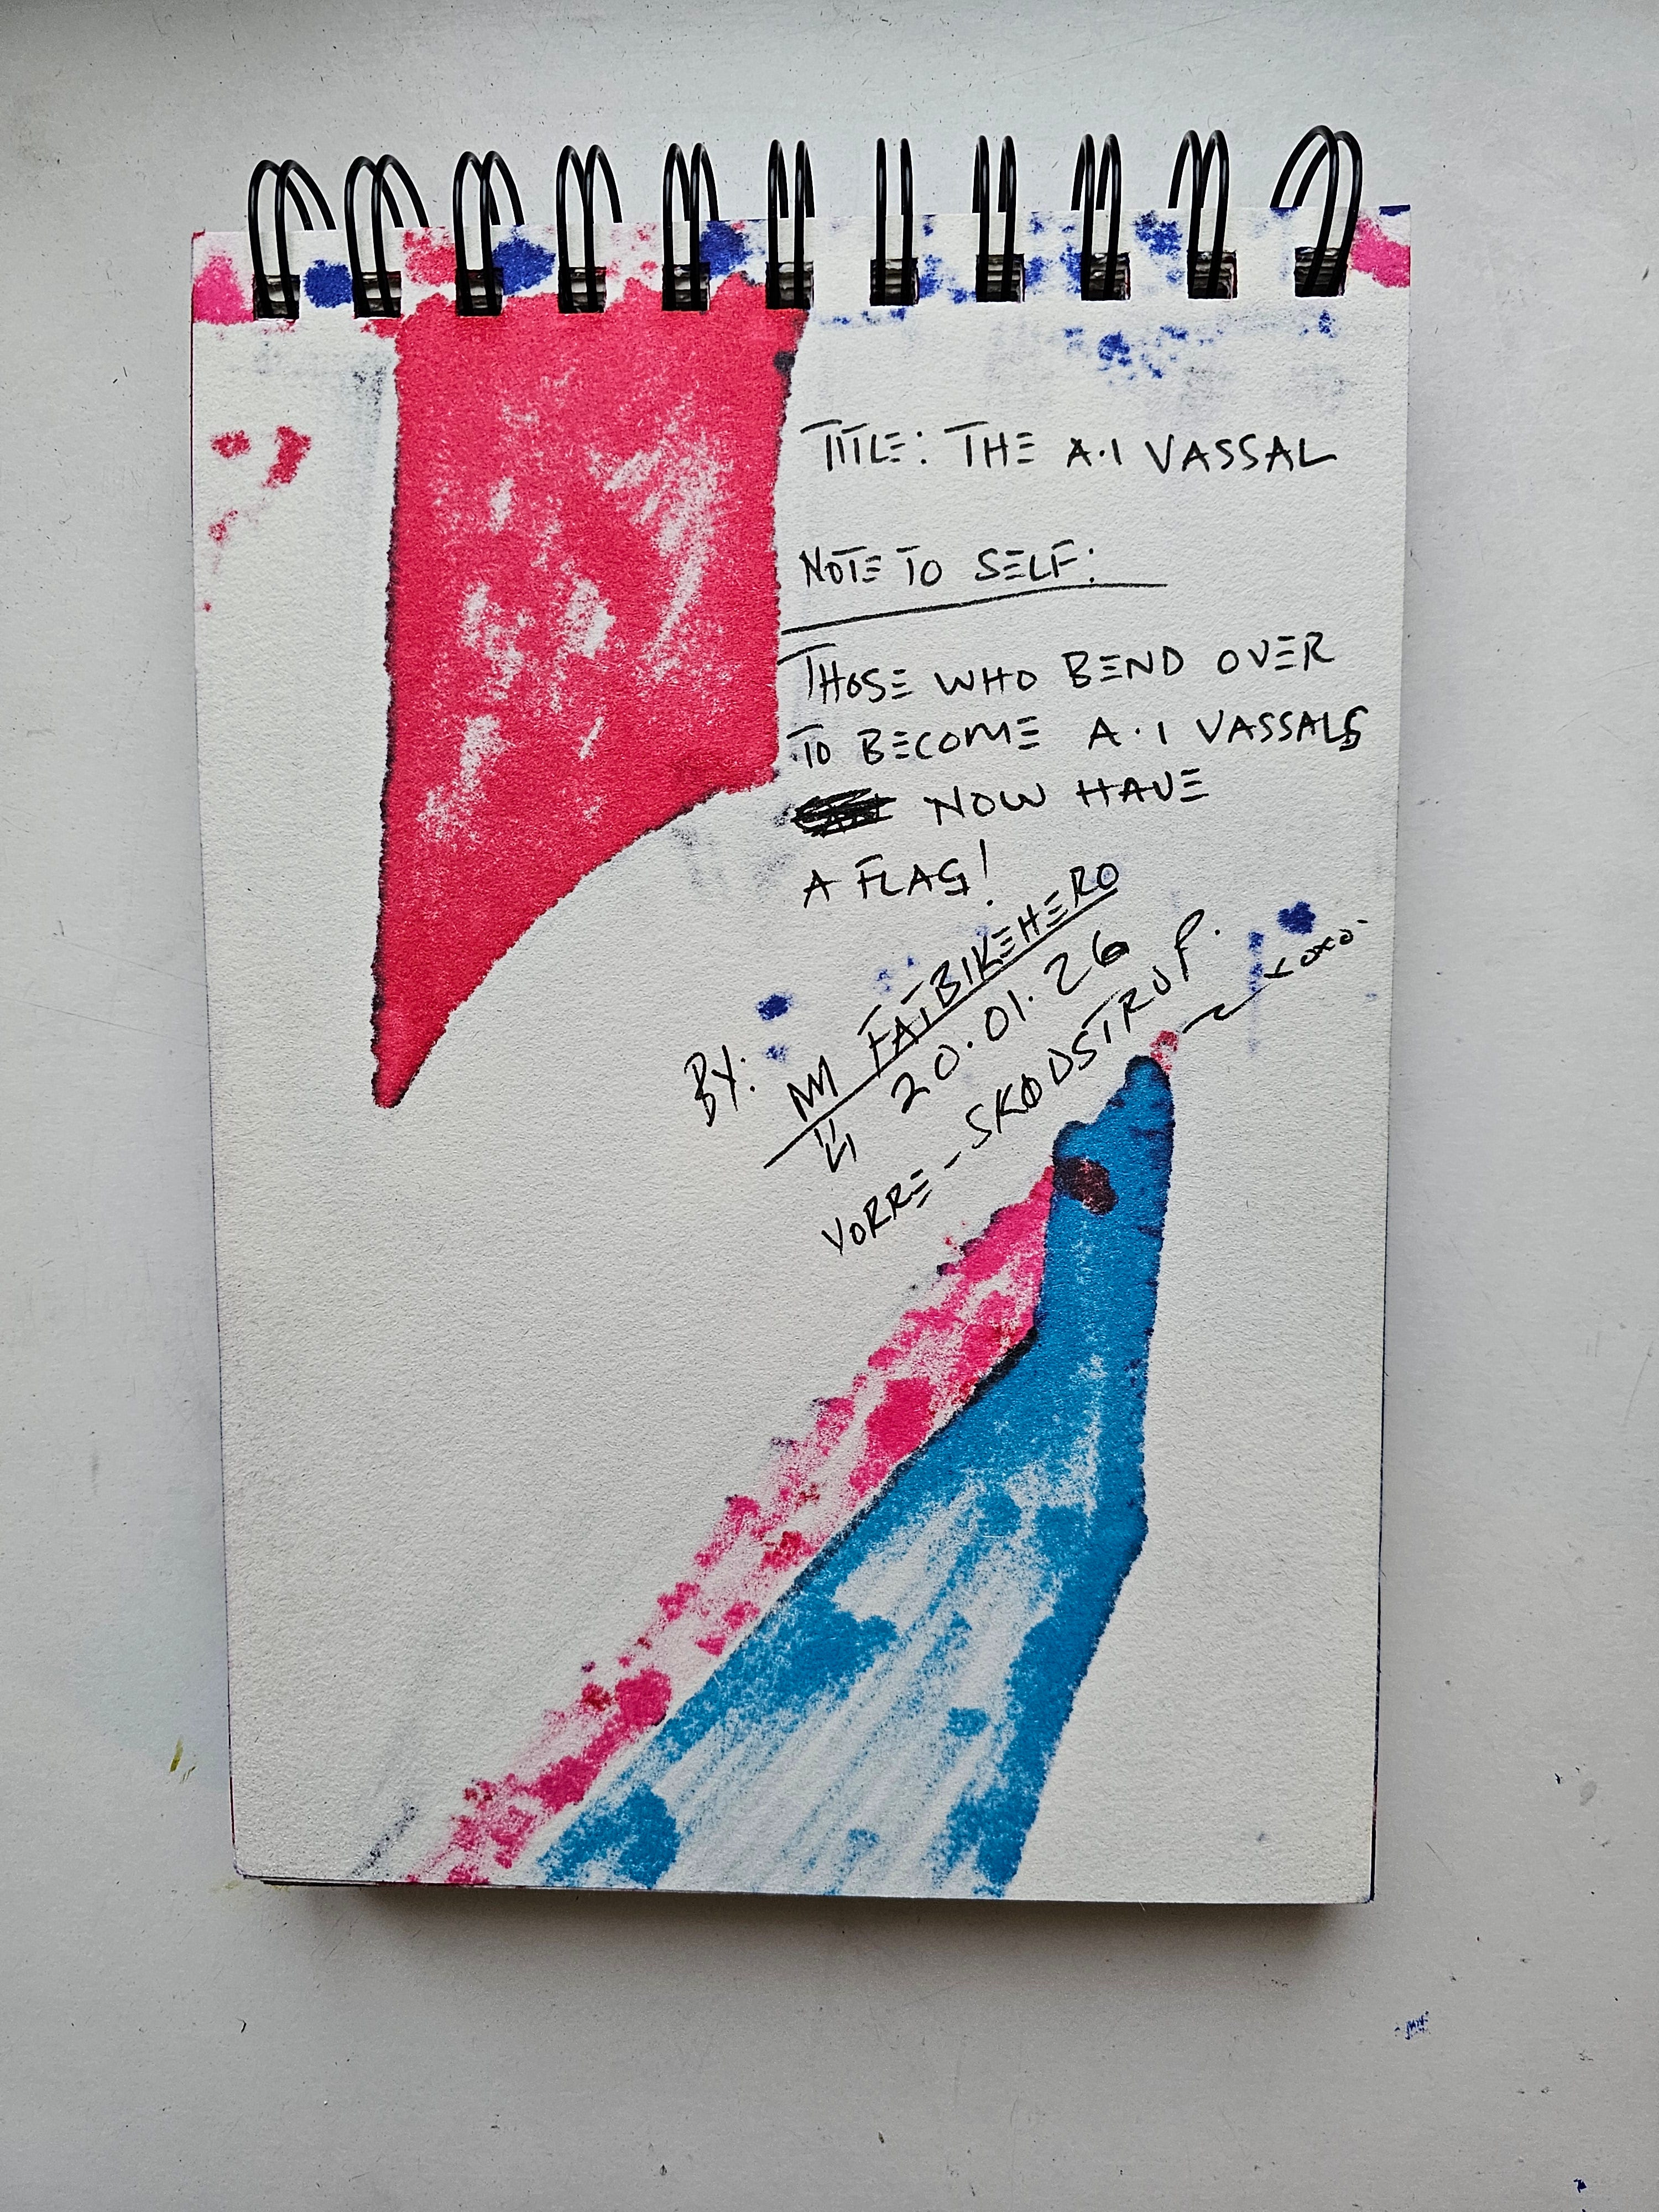 TITLE: THE A.I VASSAL
NOTE TO SELF:
THOSE WHO BEND OVER
TO BECOME A.I VASSALS
NOW HAVE
A FLAG!
BY: FATBIKEHERO
20.01.26
VORRE - SKØDSTRUP.
xoxo.